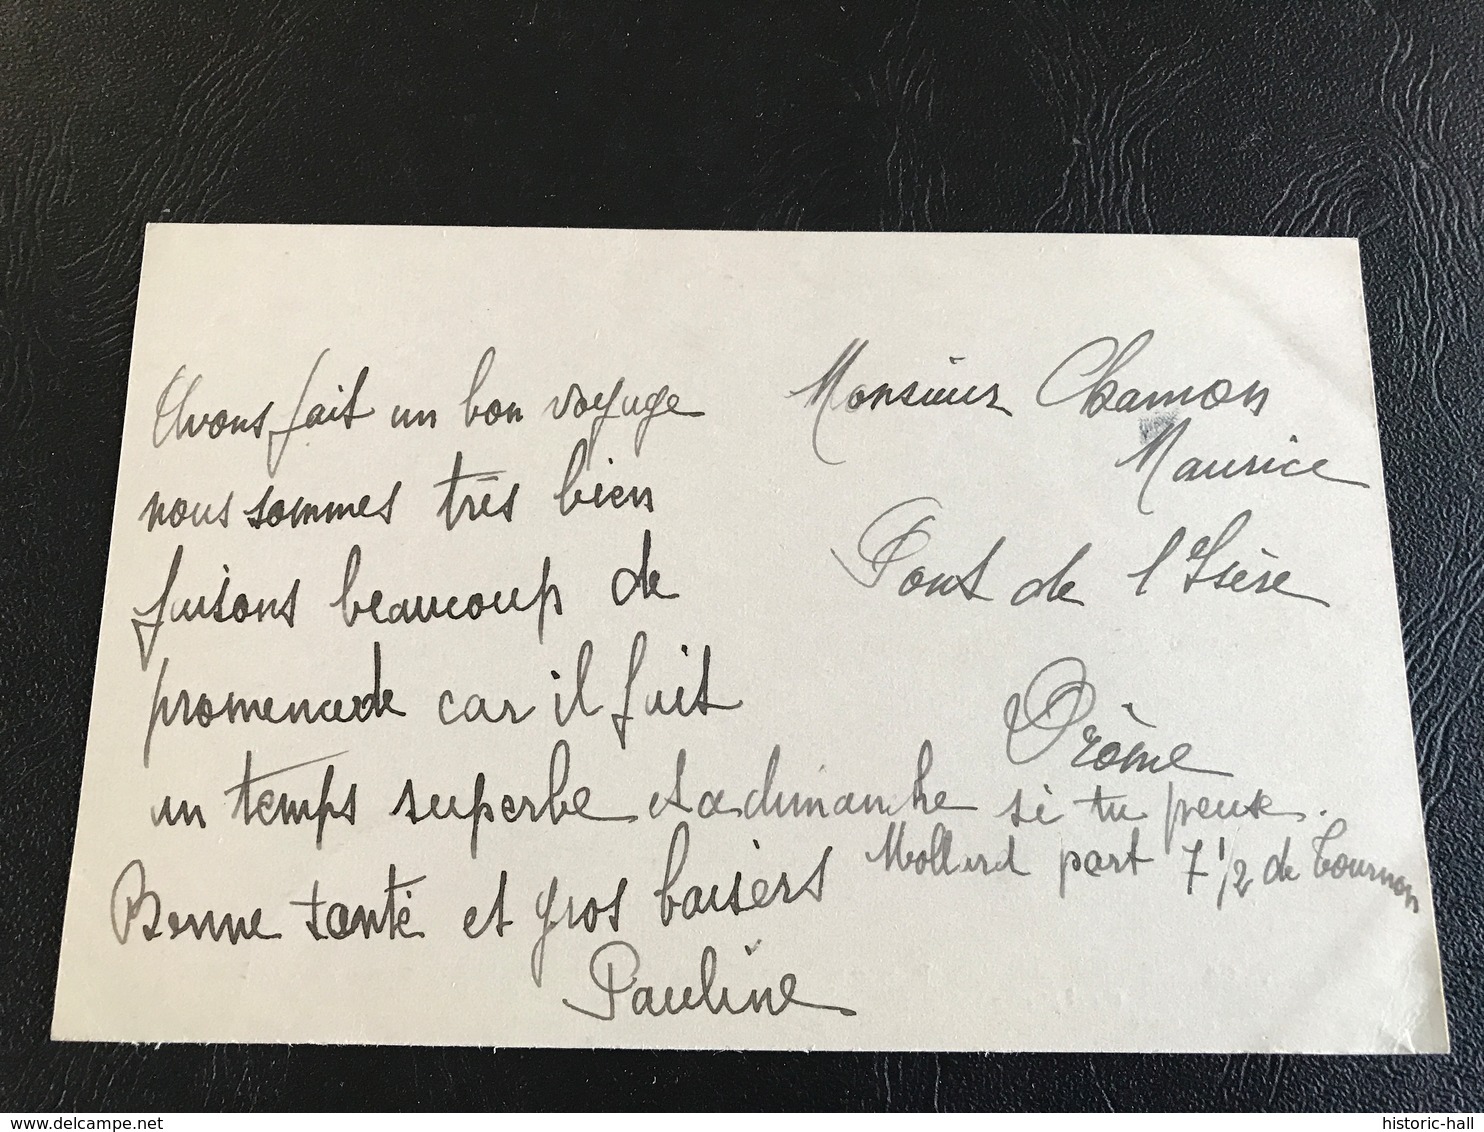 Avons fait un bon voyage
nous sommes très bien
faisons beaucoup de
promenade car il fait
un temps superbe et a dimanche si tu peux.
Mollard part 7 1/2 de Tournon
Bonne santé et gros baisers
Pauline
Monsieur Chamon
Maurice
Pont de l'Isère
Drôme
historic-hall
www.delcampe.net